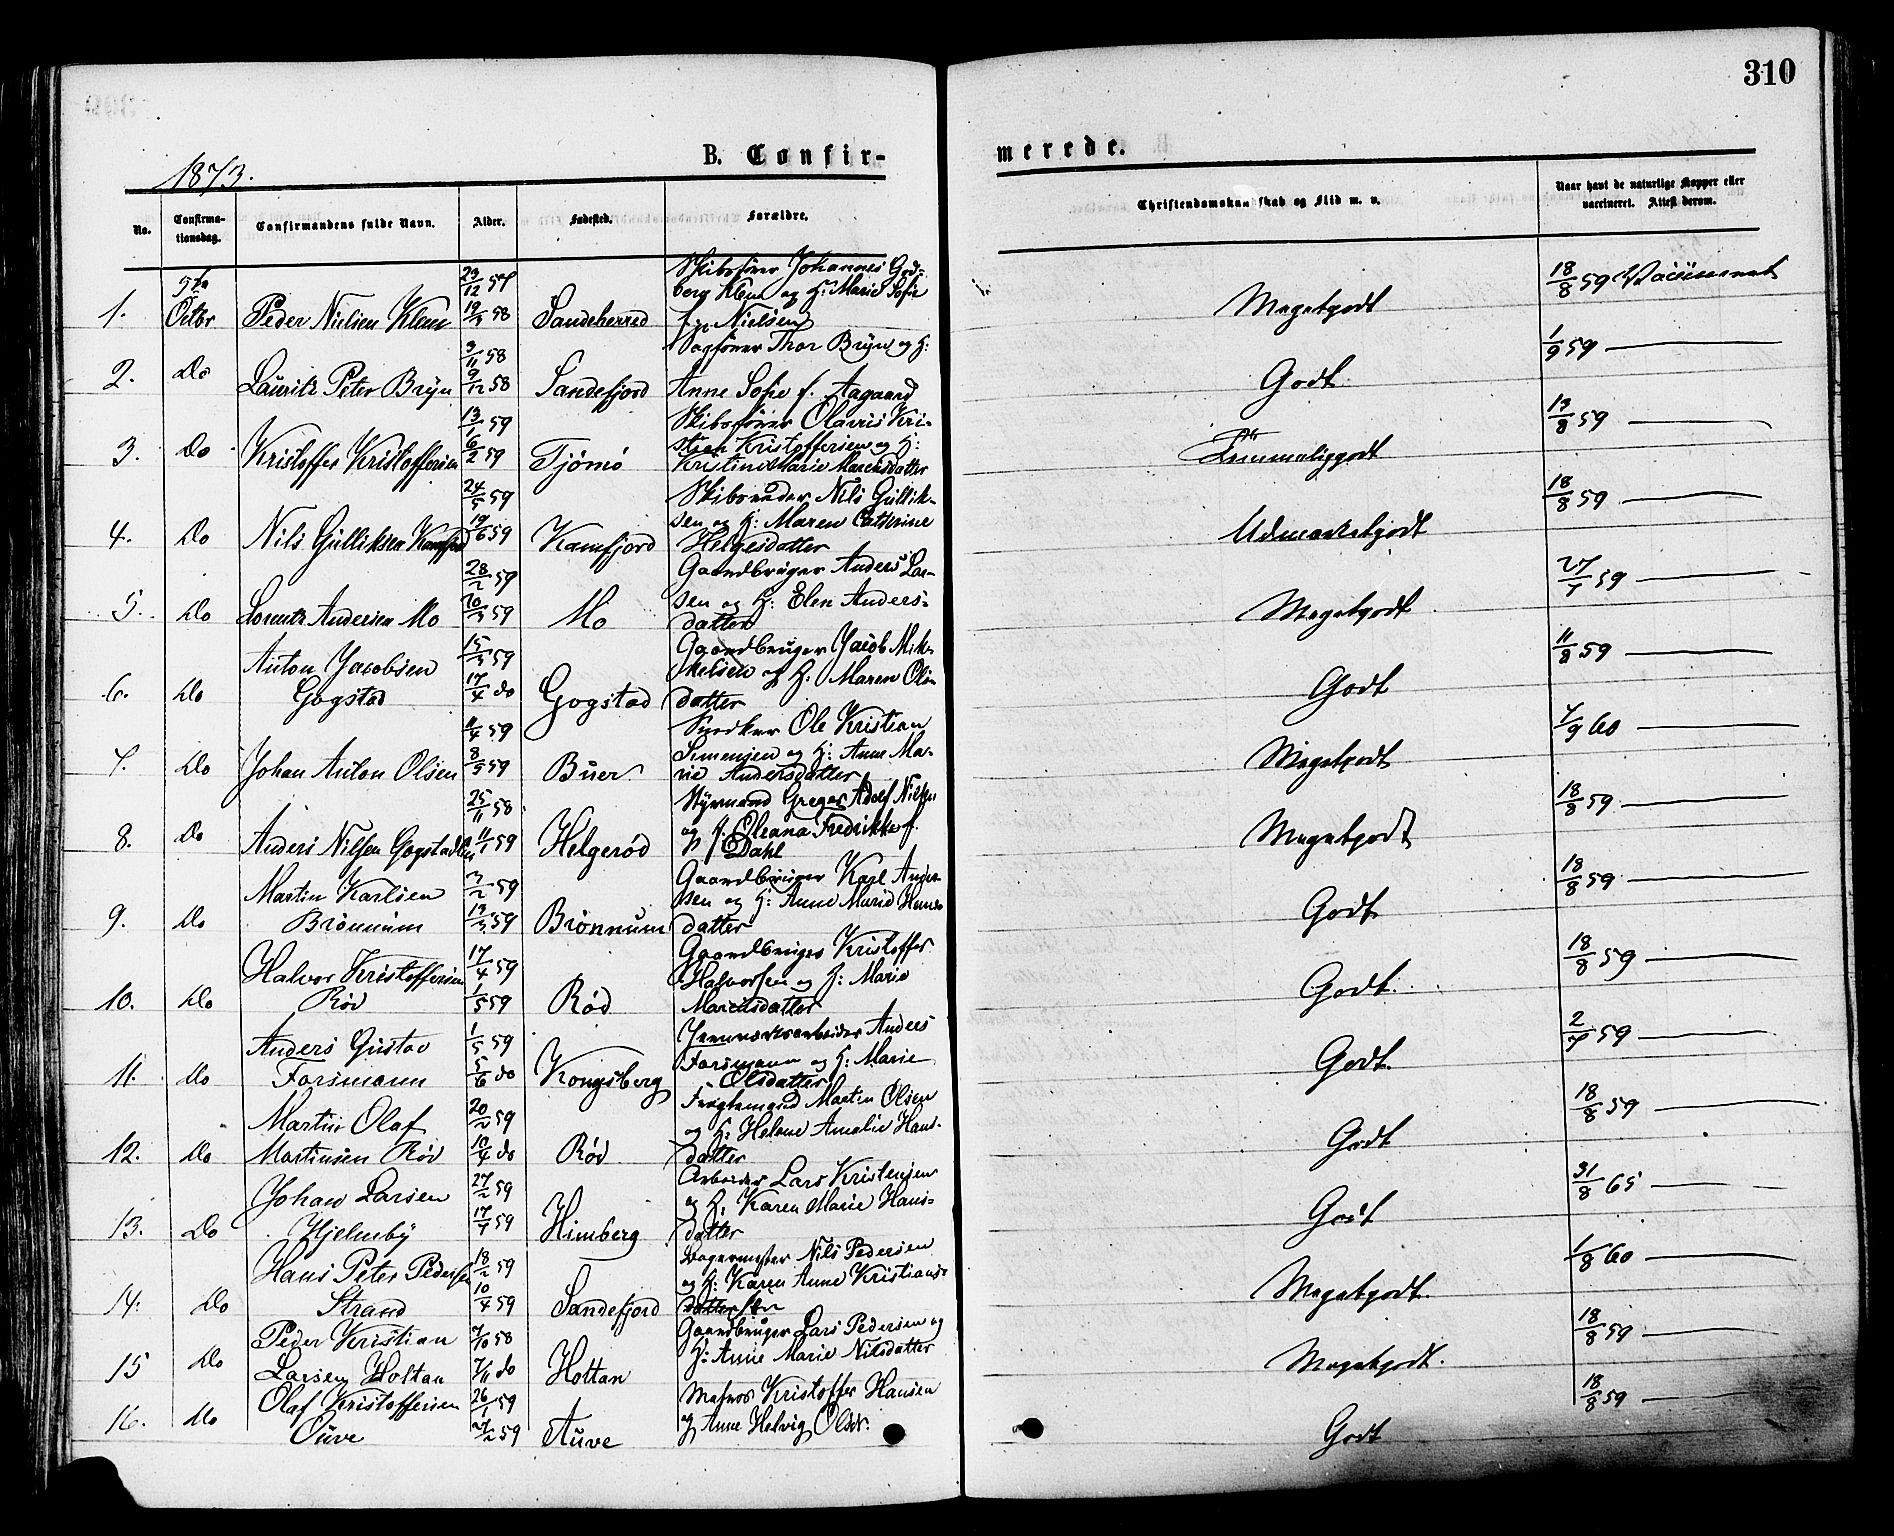 310
1873.
B. Confir-
merede.
No.
Confirma-
tionsdag.
Confirmandens fulde Navn.
Alder.
Fødested.
Forældre.
Christendomskundskab og Flid m. v.
Naar havt de naturlige Kopper eller
vaccineret. Attest derom.
1. 5te Octbr Peder Nielsen Klem 23/12 57 19/3 58 Sandeherred
Skibsfører Johannes God-
berg Klem og H: Marie Sofie
f. Nielsen
Megetgodt 18/8 59 Vaccineret
2. Do Lauritz Peter Bryn 3/11 58 9/12 58 Sandefjord
Sagfører Thor Bryn og H:
Anne Sofie f. Aagaard
Godt 1/9 59
3. Do Kristoffer Kristoffersen 13/1 59 6/2 59 Tjömö
Skibsfører Olavus Kri-
stian Kristoffersen og H:
Kristine Marie Marcusdatter
Temmeliggodt 13/8 59
4. Do Nils Gulliksen Kamfjord 24/5 59 19/6 59 Kamfjord
Skibsreder Nils Gullik-
sen og H: Maren Cathrine
Helgesdatter
Udmærketgodt 18/8 59
5. Do Lorentz Andersen Mo 28/2 59 20/3 59 Mo
Gaardbruger Anders Lar-
sen og H: Elen Anders-
datter
Megetgodt 27/7 59
6. Do Anton Jacobsen
Gogstad 15/3 59 17/4 do Gogstad
Gaardbruger Jacob Mik-
kelsen og H: Maren Ols-
datter
Godt 11/8 59
7. Do Johan Anton Olsen 11/4 59 8/5 59 Buer
Snedker Ole Kristian
Simensen og H: Anne Ma-
rie Andersdatter
Megetgodt 7/9 60
8. Do Anders Nilsen Gogstad 25/11 58 11/1 59 Helgerød
Styrmand Greger Adolf Nilsen
og H. Oleana Fredrikke f.
Dahl
Megetgodt 18/8 59
9. Do Martin Karlsen
Brönnum 3/2 59 13/3 59 Brönnum
Gaardbruger Karl Ander-
sen og H: Anne Marie Hans-
datter
Godt 18/8 59
10. Do Halvor Kristoffersen
Rød 17/4 59 1/5 59 Rød
Gaardbruger Kristoffer
Halvorsen og H: Marie
Marcusdatter
Godt 18/8 59
11. Do Anders Gustav
Forsmann 1/5 59 5/6 do Kongsberg
Jernværksarbeider Anders
Forsmann og H: Marie
Olsdatter
Godt 2/7 59
12. Do Martin Olaf
Martinsen Rød 20/2 59 10/4 do Rød
Fragtemand Martin Olsen
og H: Helene Amalie Hans-
datter
Godt 18/8 59
13. Do Johan Larsen
Hjelmby 27/2 59 17/4 59 Himberg
Arbeider Lars Kristensen
og H. Karen Marie Hans-
datter
Godt 31/8 65
14. Do Hans Peter Pedersen
Strand 18/2 59 10/4 59 Sandefjord
Bagermester Nils Pedersen
og H: Karen Anne Kristians-
Megetgodt 1/8 60
15 Do Peder Kristian
Larsen Holtan 7/10 58 7/11 do Holtan
Gaardbruger Lars Pedersen og
H: Anne Marie Nilsdatter
Megetgodt. 18/8 59
16. Do Olaf Kristoffersen
Ouve 26/1 59 27/2 59 Auve
Matros Kristoffer Hansen
og Anne Helvig Olsdr.
Godt 18/8 59